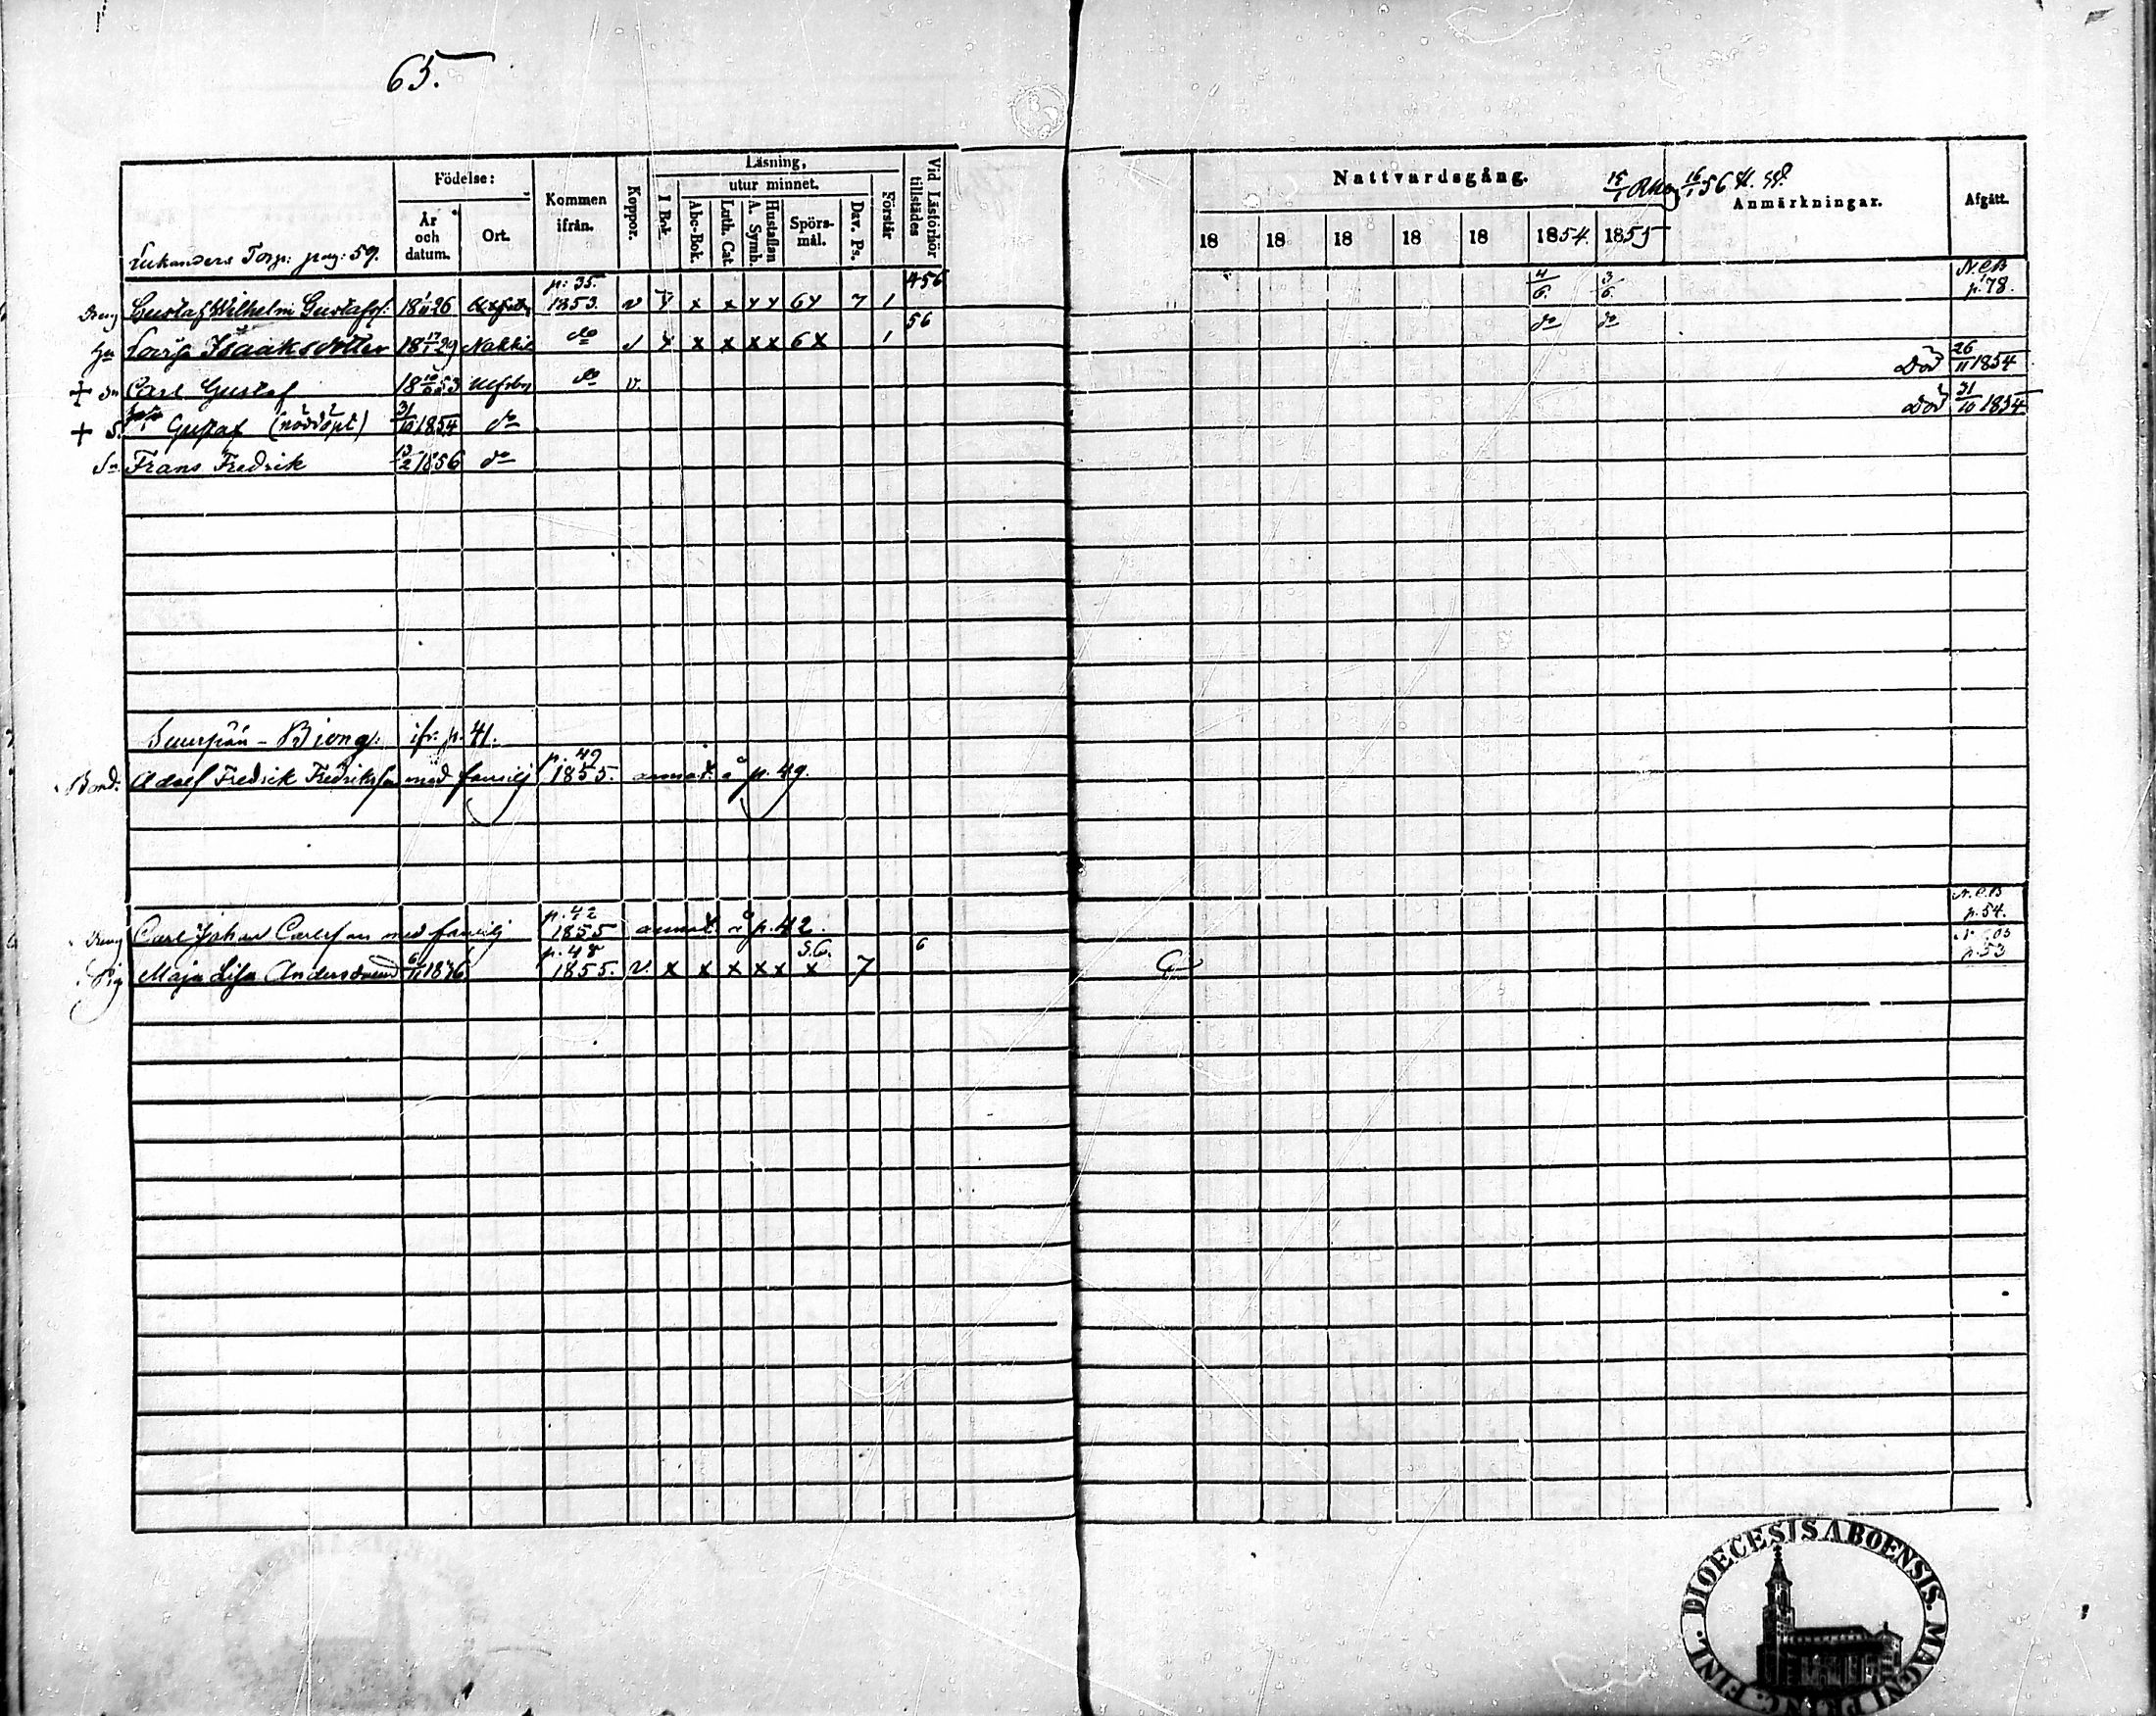 65.
Läsning,
Födelse:
utur minnet.
Kommen ifrån.
Koppor.
I Bok.
Abc-Bok.
Luth. Cat.
A. Symb.
Hustaflan
Spörsmål.
Dav. Ps.
Förstår
Vid Läsförhör tillstädes
År och datum.
Ort.
Nattvardsgång.
Anmärkningar.
Afgått.
18 18 18 18 18 1854 1855
Torp: pag: 59.
Dreng Gustaf Wilhelm Gustafs: 18 1/11 26 p: 35. 1853. v x x x x x 6x 7 1 456 4/6. 3/6. N.C.B p. 78.
Hu Lovisa Isaaksdotter 18 17/1 29 Nakkila do v x x x x x 6 x 1 56 do do
+ Sn Carl Gustaf 18 53 Ulfsby do v. Död 26/11 1854
+ S. Gustaf (nöddöpt) 31/10 1854 do Död 31/10 1854
Sn Frans Fredrik 13/2 1856 do
Björnq: ifr. p. 41.
Bond. Adolf Fredrik Fredriksson med familj p. 49 1855. annot. å p. 49.
Dreng Carl Johan Carlsson med familj p. 42 1855 annot. å p. 42. N.C.B p. 54.
Pig Maja Lisa Andersdotter p. 48 1855. v. x x x x x S.C. x 7 6 p. 53
DIOECESIS ABOENSIS. MAGNI PRINC. FINL.